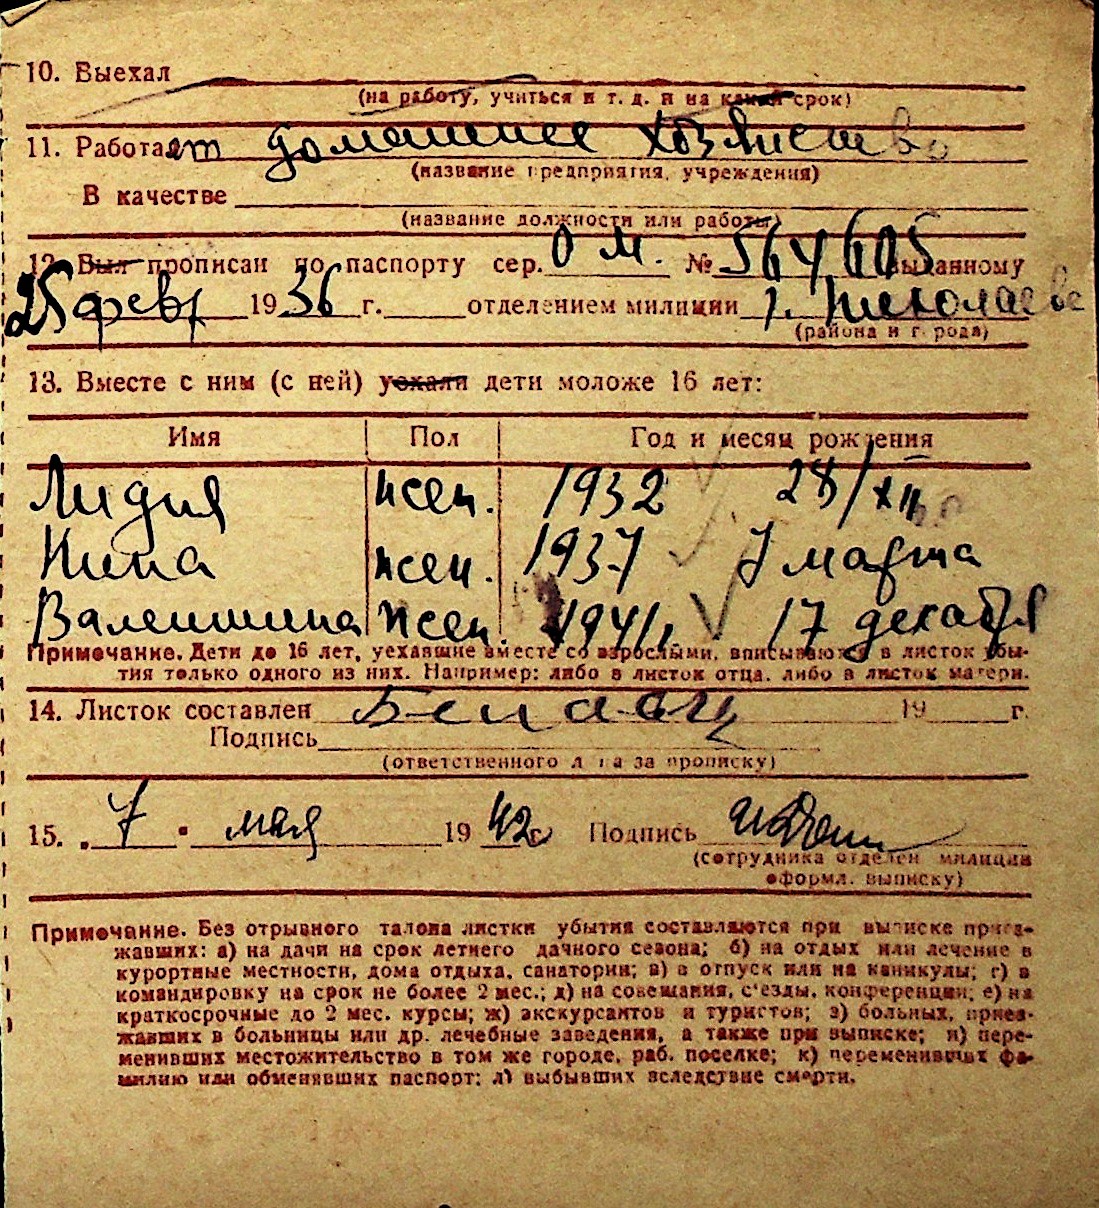 10. Выехал
(на работу, учиться и т. д. и на какой срок)
11. Работает домашнее хозяйство
(название предприятия, учреждения)
В качестве
(название должности или работы)
12. Был прописан по паспорту сер. О М. № 564605 выданному
25 февр 1936 г. отделением милиции г. Николаеве
(района и города)
13. Вместе с ним (с ней) уехали дети моложе 16 лет:
Имя Пол Год и месяц рождения
Лидия жен. 1932 28/XII
Нина жен. 1937 7 марта
Валентина жен. 1941 17 декабря
Примечание. Дети до 16 лет, уехавшие вместе со взрослыми, вписываются в листок убы-
тия только одного из них. Например: либо в листок отца, либо в листок матери.
14. Листок составлен 19 г.
Подпись
(ответственного лица за прописку)
15. „ 7 " мая 1942 г. Подпись
(сотрудника отделен. милиции
оформл. выписку)
Примечание. Без отрывного талона листки убытия составляются при выписке приез-
жавших: а) на дачи на срок летнего дачного сезона; б) на отдых или лечение в
курортные местности, дома отдыха, санатории; в) в отпуск или на каникулы; г) в
командировку на срок не более 2 мес.; д) на совещания, с'езды, конференции; е) на
краткосрочные до 2 мес. курсы; ж) экскурсантов и туристов; з) больных, приез-
жавших в больницы или др. лечебные заведения, а также при выписке; и) пере-
менивших местожительство в том же городе, раб. поселке; к) переменивших фа-
милию или обменявших паспорт; л) выбывших вследствие смерти.